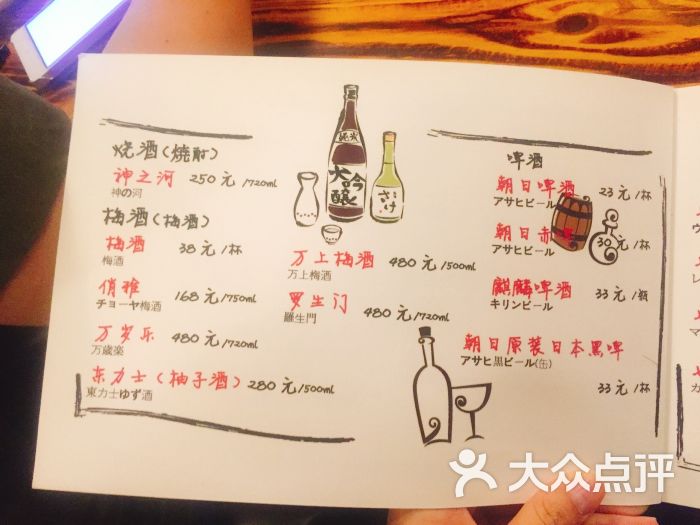 烧酒(焼酎)
神之河 250元/720ml
神の河
梅酒(梅酒)
梅酒 38元/杯
梅酒
俏雅 168元/750ml
チョーヤ梅酒
万岁乐 480元/720ml
万歳楽
东力士(柚子酒) 280元/500ml
東力士ゆず酒
純米
大吟醸
さけ
万上梅酒 480元/500ml
万上梅酒
罗生门 480元/720ml
羅生門
啤酒
朝日啤酒 23元/杯
アサヒビール
朝日赤啤 30元/杯
アサヒビール
麒麟啤酒 33元/瓶
キリンビール
朝日原装日本黑啤
アサヒ黒ビール(缶)
33元/杯
大众点评